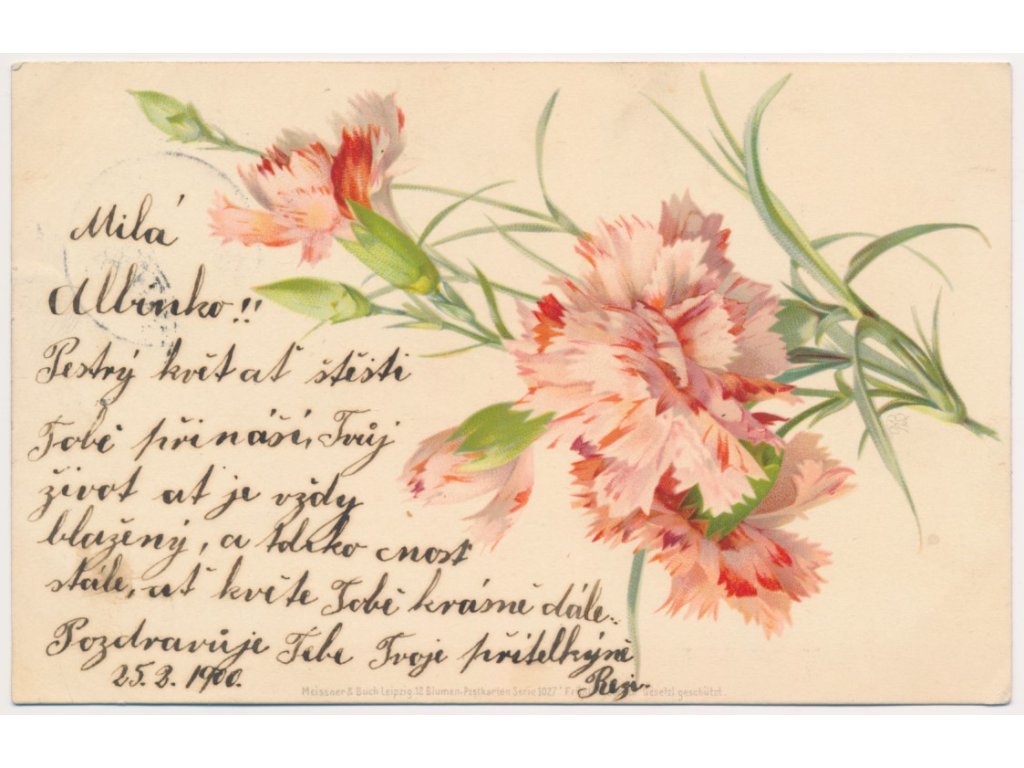 Milá
Albinko!!
Pestrý květ ať štěsti
Tobě přináší, Tvůj
život ať je vždy
blažený, a
cnost
stále, ať květe Tobě krásně dále..
Pozdravůje Tebe Tvoje přítelkýně
25.2. 1900.
Rezi.
Meissner & Buch Leipzig. 12 Blumen-Postkarten Serie 1027 Gesetzl geschützt.